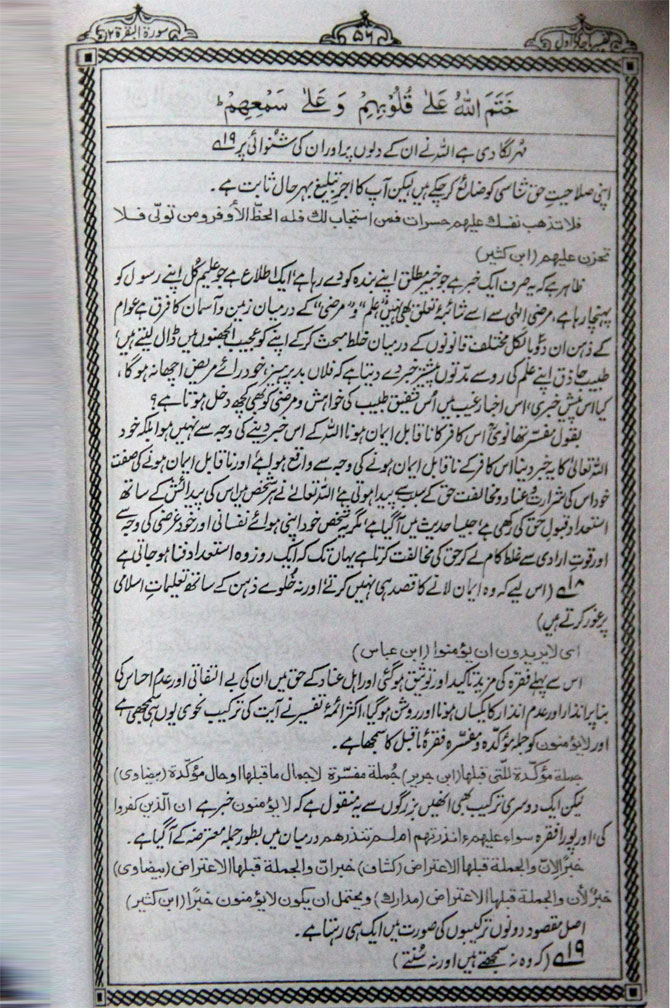 تفسیر ماجدی اول
۵۶
سورۃ البقرۃ ۲
خَتَمَ اللّٰهُ عَلٰی قُلُوْبِهِمْ وَ عَلٰی سَمْعِهِمْ ؕ
مُہر لگا دی ہے اللہ نے ان کے دلوں پر اور ان کی شنوائی پر ۱۹
اپنی صلاحیتِ حق شناسی کو ضائع کرچکے ہیں لیکن آپ کا اجرِ تبلیغ بہرحال ثابت ہے۔
فلا تذهب نفسك عليهم حسرات فمن استجاب لك فله الحظ الأوفر ومن تولّى فلا
تحزن عليهم (ابن كثير)
ظاہر ہے کہ یہ صرف ایک خبر ہے جو خبیرِ مطلق اپنے بندہ کو دے رہا ہے، ایک اطلاع ہے جو علیم کُل اپنے رسول کو
پہنچا رہا ہے، مرضی الٰہی سے اسے شائبۂ تعلق بھی نہیں، "علم" و "مرضی" کے درمیان زمین و آسمان کا فرق ہے عوام
کے ذہن ان دو بالکل مختلف قانونوں کے درمیان خلط مبحث کرکے اپنے کو عجیب الجھنوں میں ڈال لیتے ہیں،
طبیب حاذق اپنے علم کی رو سے مدّتوں پیشتر خبر دے دیتا ہے کہ فلاں بدپرہیز، خود رائے مریض اچھا نہ ہوگا،
کیا اس پیش خبری، اس اخبارِ غیب میں اُس شفیق طبیب کی خواہش و مرضی کو بھی کچھ دخل ہوتا ہے؟
بقول مفسّر تھانویؒ اس کافر کا ناقابل ایمان ہونا اللہ کے اس خبر دینے کی وجہ سے نہیں ہوا بلکہ خود
اللہ تعالیٰ کا یہ خبر دینا اس کافر کے ناقابل ایمان ہونے کی وجہ سے واقع ہوا ہے، اور ناقابل ایمان ہونے کی صفت
خود اس کی شرارت و عناد و مخالفت حق کے سبب پیدا ہوتی ہے، اللہ تعالےٰ نے ہر شخص میں اس کی پیدائش کے ساتھ
استعداد قبولِ حق کی رکھی ہے، جیسا حدیث میں آگیا ہے، مگر یہ شخص خود اپنی ہوائے نفسانی اور خود غرضی کی وجہ سے
اور قوتِ ارادی سے غلط کام لے کر حق کی مخالفت کرتا ہے یہاں تک کہ ایک روز وہ استعداد فنا ہوجاتی ہے
۱۸ (اس لیے کہ وہ ایمان لانے کا قصد ہی نہیں کرتے اور نہ کُھلوے ذہن کے ساتھ تعلیماتِ اسلامی
پر غور کرتے ہیں)
ای لا يريدون ان يؤمنوا (ابن عباس)
اس سے پہلے فقرہ کی مزید تاکید اور توثیق ہوگئی اور اہل عناد کے حق میں ان کی بے التفاتی اور عدم احساس کی
بنا پر انذار اور عدم انذار کا یکساں ہونا اور روشن ہوگیا، اکثر ائمۂ تفسیر نے آیت کی ترکیب نحوی یوں ہی سمجھی ہے
اور لایؤمنون کو جملہ مؤکّدہ و مفسّرہ فقرۂ ماقبل کا سمجھا ہے۔
جملة مؤكّدة للّتى قبلها (ابن جرير) جُملة مفسّرة لاجمال ماقبلها او حال مؤكّدة (بيضاوى)
لیکن ایک دوسری ترکیب بھی انھیں بزرگوں سے یہ منقول ہے کہ لایؤمنون خبر ہے ان الذین کفروا
کی، اور پورا فقرہ سواء علیھم ءانذرتھم ام لم تنذرھم درمیان میں بطور جملہ معترضہ کے آگیا ہے۔
خبرٌ لانّ والجملة قبلها الاعتراض (كشاف) خبران والجملة قبلها الاعتراض (بيضاوى)
خبرٌ لأن والجملة قبلها الاعتراض (مدارك) ويحتمل ان يكون لايؤمنون خبرًا (ابن كثير)
اصل مقصود دونوں ترکیبوں کی صورت میں ایک ہی رہتا ہے۔
۱۹ (کہ وہ نہ سمجھتے ہیں اور نہ سُنتے)